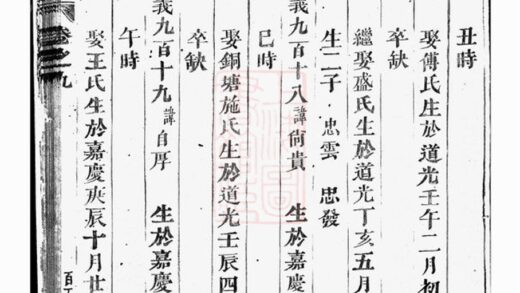 丑時
娶傅氏生於道光壬午二月初
卒缺
繼娶盛氏生於道光丁亥五月
生二子 忠雲 忠發
義九百十八 諱尙貴 生於嘉慶
巳時
娶銅塘施氏生於道光壬辰四
卒缺
義九百十九 諱自厚 生於嘉慶
午時
娶王氏生於嘉慶庚辰十月廿
卷之九